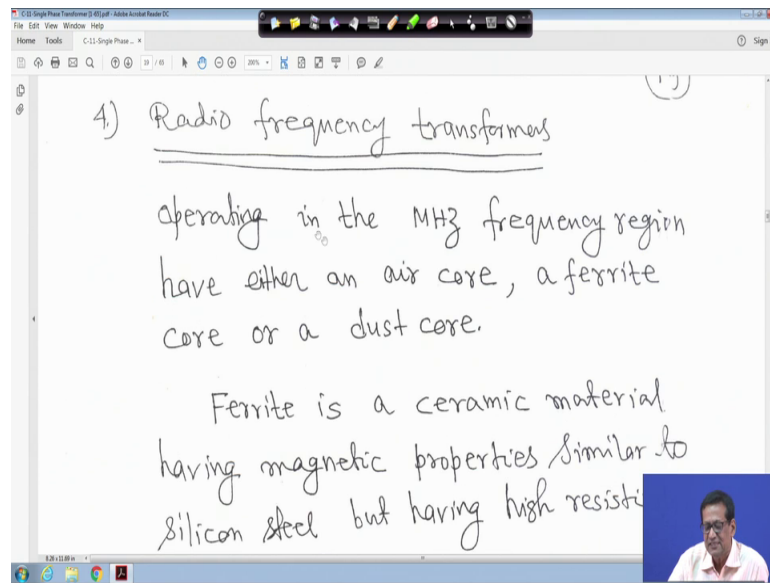 C-11-Single Phase Transformer [1-65].pdf - Adobe Acrobat Reader DC
File Edit View Window Help
Home Tools C-11-Single Phase ... × Sign
19 / 65 200%
4.) Radio frequency transformers
operating in the MHz frequency region
have either an air core, a ferrite
core or a dust core.
Ferrite is a ceramic material
having magnetic properties similar to
silicon steel but having high resisti
8.26 x 11.69 in